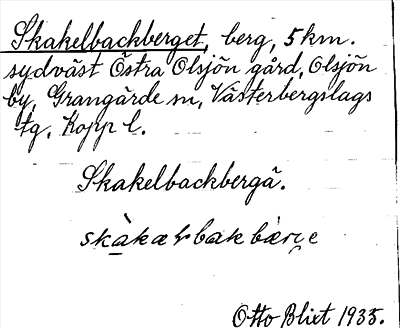 Skakelbackberget, berg, 5 km.
sydväst Östra Olsjön gård, Olsjön
by, Grangärde sn, Västerbergslags
tg, Kopp l.
Skakelbackbergä.
Otto Blixt 1935.